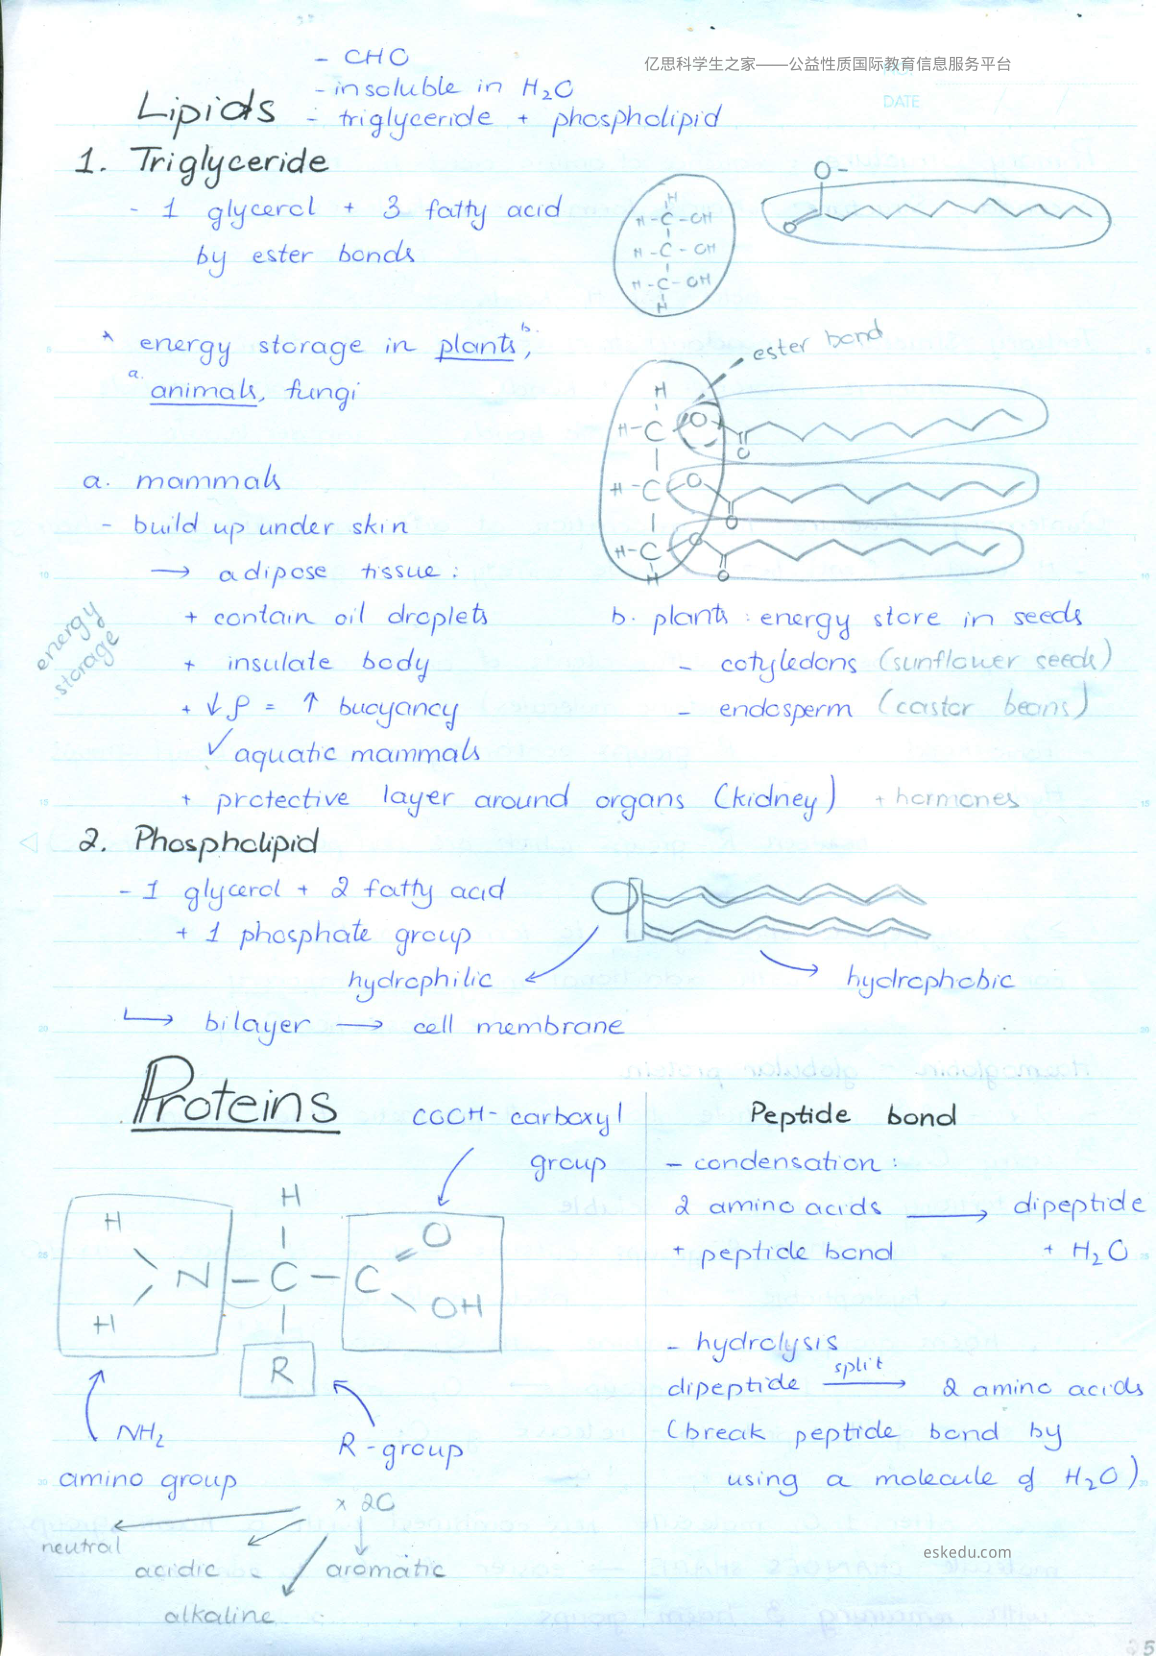 亿思科学生之家——公益性质国际教育信息服务平台
DATE
- CHO
- insoluble in H₂O
Lipids - triglyceride + phospholipid
1. Triglyceride
- 1 glycerol + 3 fatty acid
by ester bonds
H
H - C - OH
H - C - OH
H - C - OH
H
O -
O
* energy storage in plants b.,
a. animals, fungi
ester bond
H
H - C O
O
H - C O
O
H - C O
O
H
a. mammals
- build up under skin
→ adipose tissue :
energy storage
+ contain oil droplets
+ insulate body
+ ↓ρ = ↑ buoyancy
✓ aquatic mammals
+ protective layer around organs (kidney) + hormones
b. plants : energy store in seeds
- cotyledons (sunflower seeds)
- endosperm (castor beans)
2. Phospholipid
- 1 glycerol + 2 fatty acid
+ 1 phosphate group
hydrophilic
hydrophobic
↳ bilayer → cell membrane
Proteins
COOH - carboxyl
group
H
H
N - C - C
O
OH
H
R
NH₂
amino group
R - group
x 20
neutral
acidic
aromatic
alkaline
Peptide bond
- condensation :
2 amino acids → dipeptide
+ peptide bond + H₂O
- hydrolysis
dipeptide split → 2 amino acids
(break peptide bond by
using a molecule of H₂O)
eskedu.com
25